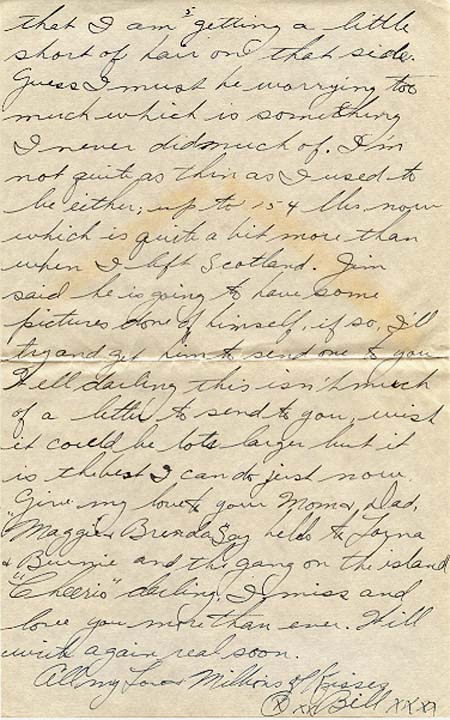 5
that I am getting a little
short of hair on that side.
Guess I must be worrying too
much which is something
I never did much of. I'm
not quite as thin as I used to
be either; up to 154 lbs now
which is quite a bit more than
when I left Scotland. Jim
said he is going to have some
pictures done of himself, if so, I'll
try and get him to send one to you
Well darling this isn't much
of a letter to send to you, wish
it could be lots larger but it
is the best I can do just now.
Give my love to your Mom & Dad,
"Maggie & Brenda Say hello to Lorna
& Bunnie and the gang on the island
"Cheerio" darling, I miss and
love you more than ever. Will
write again real soon.
All my Love & Millions of Kisses
Ⓧ xx Bill xxxx